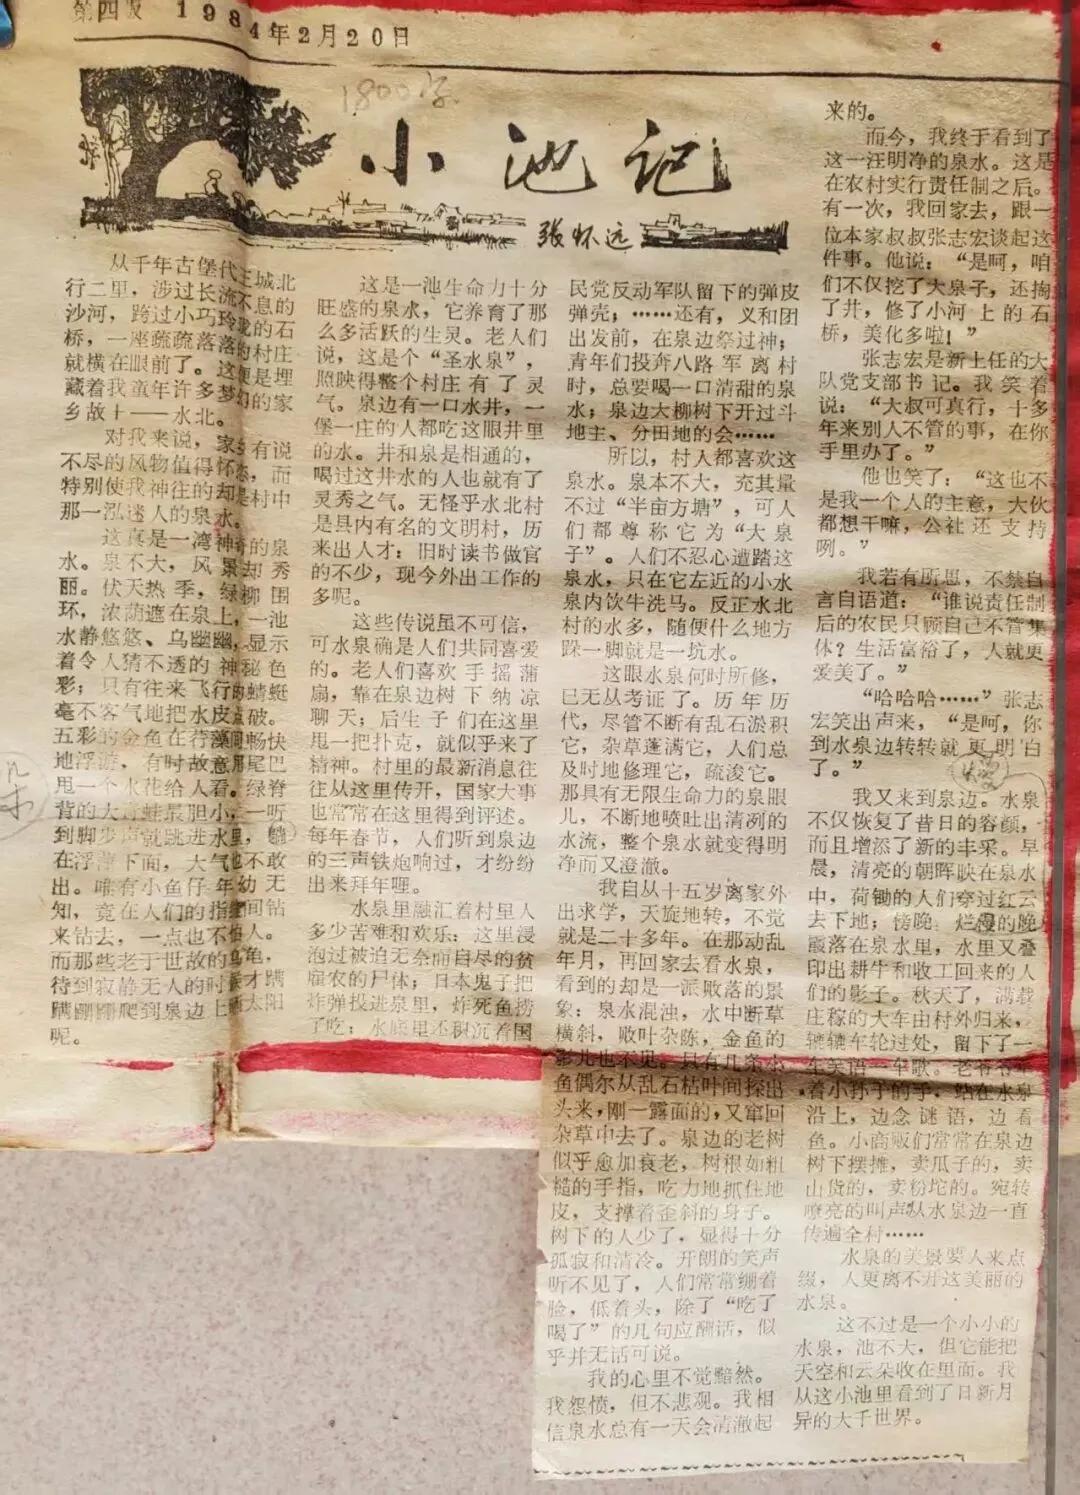 第四版 1984年2月20日
1800字
小池记
张怀远
从千年古堡代王城北
行二里，涉过长流不息的
沙河，跨过小巧玲珑的石
桥，一座疏疏落落的村庄
就横在眼前了。这便是埋
藏着我童年许多梦幻的家
乡故土——水北。
对我来说，家乡有说
不尽的风物值得怀恋，而
特别使我神往的却是村中
那一泓迷人的泉水。
这真是一湾神奇的泉
水。泉不大，风景却秀
丽。伏天热季，绿柳围
环，浓荫遮在泉上，一池
水静悠悠、乌幽幽，显示
着令人猜不透的神秘色
彩；只有往来飞行的蜻蜓
毫不客气地把水皮点破。
五彩的金鱼在荇藻间畅快
地浮游，有时故意用尾巴
甩一个水花给人看。绿脊
背的大青蛙最胆小，一听
到脚步声就跳进水里，躺
在浮萍下面，大气也不敢
出。唯有小鱼仔年幼无
知，竟在人们的指缝间钻
来钻去，一点也不怕人。
而那些老于世故的乌龟，
待到寂静无人的时候才蹒
蹒跚跚爬到泉边上晒太阳
呢。
这是一池生命力十分
旺盛的泉水，它养育了那
么多活跃的生灵。老人们
说，这是个“圣水泉”，
照映得整个村庄有了灵
气。泉边有一口水井，一
堡一庄的人都吃这眼井里
的水。井和泉是相通的，
喝过这井水的人也就有了
灵秀之气。无怪乎水北村
是县内有名的文明村，历
来出人才：旧时读书做官
的不少，现今外出工作的
多呢。
这些传说虽不可信，
可水泉确是人们共同喜爱
的。老人们喜欢手摇蒲
扇，靠在泉边树下纳凉
聊天；后生子们在这里
甩一把扑克，就似乎来了
精神。村里的最新消息往
往从这里传开，国家大事
也常常在这里得到评述。
每年春节，人们听到泉边
的三声铁炮响过，才纷纷
出来拜年哩。
水泉里融汇着村里人
多少苦难和欢乐：这里浸
泡过被迫无奈而自尽的贫
雇农的尸体；日本鬼子把
炸弹投进泉里，炸死鱼捞
了吃；水底里还积沉着国
民党反动军队留下的弹皮
弹壳；……还有，义和团
出发前，在泉边祭过神；
青年们投奔八路军离村
时，总要喝一口清甜的泉
水；泉边大柳树下开过斗
地主、分田地的会……
所以，村人都喜欢这
泉水。泉本不大，充其量
不过“半亩方塘”，可人
们都尊称它为“大泉
子”。人们不忍心遭踏这
泉水，只在它左近的小水
泉内饮牛洗马。反正水北
村的水多，随便什么地方
跺一脚就是一坑水。
这眼水泉何时所修，
已无从考证了。历年历
代，尽管不断有乱石淤积
它，杂草蓬满它，人们总
及时地修理它，疏浚它。
那具有无限生命力的泉眼
儿，不断地喷吐出清冽的
水流，整个泉水就变得明
净而又澄澈。
我自从十五岁离家外
出求学，天旋地转，不觉
就是二十多年。在那动乱
年月，再回家去看水泉，
看到的却是一派败落的景
象：泉水混浊，水中断草
横斜，败叶杂陈，金鱼的
影儿也不见。只有几条小
鱼偶尔从乱石枯叶间探出
头来，刚一露面的，又窜回
杂草中去了。泉边的老树
似乎愈加衰老，树根如粗
糙的手指，吃力地抓住地
皮，支撑着歪斜的身子。
树下的人少了，显得十分
孤寂和清冷。开朗的笑声
听不见了，人们常常绷着
脸，低着头，除了“吃了
喝了”的几句应酬话，似
乎并无话可说。
我的心里不觉黯然。
我怨愤，但不悲观。我相
信泉水总有一天会清澈起
来的。
而今，我终于看到了
这一汪明净的泉水。这是
在农村实行责任制之后。
有一次，我回家去，跟一
位本家叔叔张志宏谈起这
件事。他说：“是呵，咱
们不仅挖了大泉子，还掏
了井，修了小河上的石
桥，美化多啦！”
张志宏是新上任的大
队党支部书记。我笑着
说：“大叔可真行，十多
年来别人不管的事，在你
手里办了。”
他也笑了：“这也不
是我一个人的主意，大伙
都想干嘛，公社还支持
咧。”
我若有所思，不禁自
言自语道：“谁说责任制
后的农民只顾自己不管集
体？生活富裕了，人就更
爱美了。”
“哈哈哈……”张志
宏笑出声来，“是呵，你
到水泉边转转就更明白
了。”
我又来到泉边。水泉
不仅恢复了昔日的容颜，
而且增添了新的丰采。早
晨，清亮的朝晖映在泉水
中，荷锄的人们穿过红云
去下地；傍晚，烂漫的晚
霞落在泉水里，水里又叠
印出耕牛和收工回来的人
们的影子。秋天了，满载
庄稼的大车由村外归来，
辘辘车轮过处，留下了一
车笑语一车歌。老爷爷牵
着小孙子的手，站在水泉
沿上，边念谜语，边看
鱼。小商贩们常常在泉边
树下摆摊，卖瓜子的，卖
山货的，卖粉坨的。宛转
嘹亮的叫声从水泉边一直
传遍全村……
水泉的美景要人来点
缀，人更离不开这美丽的
水泉。
这不过是一个小小的
水泉，池不大，但它能把
天空和云朵收在里面。我
从这小池里看到了日新月
异的大千世界。